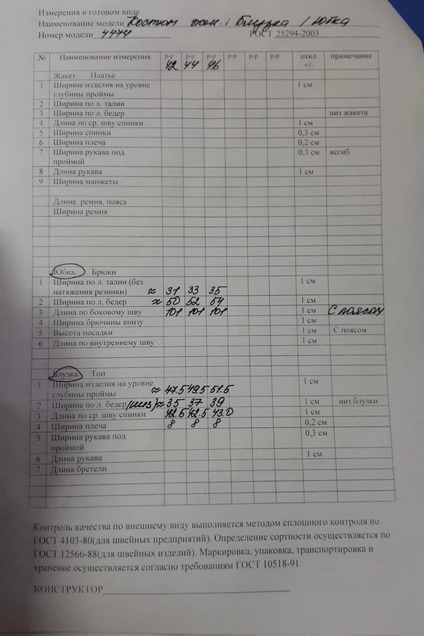 Измерения в готовом виде
Наименование модели Костюм жен.: Блузка / Юбка
Номер модели 4474 ГОСТ 25294-2003
№ Наименование измерения р-р 42 р-р 44 р-р 46 р-р р-р р-р откл +/- примечание
Жакет. Платье
1 Ширина изделия на уровне глубины проймы 1 см
2 Ширина по л. талии
3 Ширина по л. бедер низ жакета
4 Длина по ср. шву спинки 1 см
5 Ширина спинки 0,3 см
6 Ширина плеча 0,2 см
7 Ширина рукава под проймой 0,3 см всгиб
8 Длина рукава 1 см
9 Ширина манжеты
Длина ремня, пояса
Ширина ремня
Юбка. Брюки
1 Ширина по л. талии (без натяжения резинки) ≈ 31 33 35 1 см
2 Ширина по л. бедер ≈ 50 52 54 1 см
3 Длина по боковому шву 101 101 101 1 см С поясом
4 Ширина брючины внизу 1 см
5 Высота посадки 1 см С поясом
6 Длина по внутреннему шву 1 см
Блузка. Топ
1 Ширина изделия на уровне глубины проймы ≈ 47.5 49.5 51.5 1 см
2 Ширина по л. бедер (низ) ≈ 35 37 39 1 см низ блузки
3 Длина по ср. шву спинки 42.5 42.5 43.0 1 см
4 Ширина плеча 8 8 8 0,2 см
5 Ширина рукава под проймой 0,3 см
6 Длина рукава 1 см
7 Длина бретели
Контроль качества по внешнему виду выполняется методом сплошного контроля по
ГОСТ 4103-80(для швейных предприятий). Определение сортности осуществляется по
ГОСТ 12566-88(для швейных изделий). Маркировка, упаковка, транспортировка и
хранение осуществляется согласно требованиям ГОСТ 10518-91
КОНСТРУКТОР